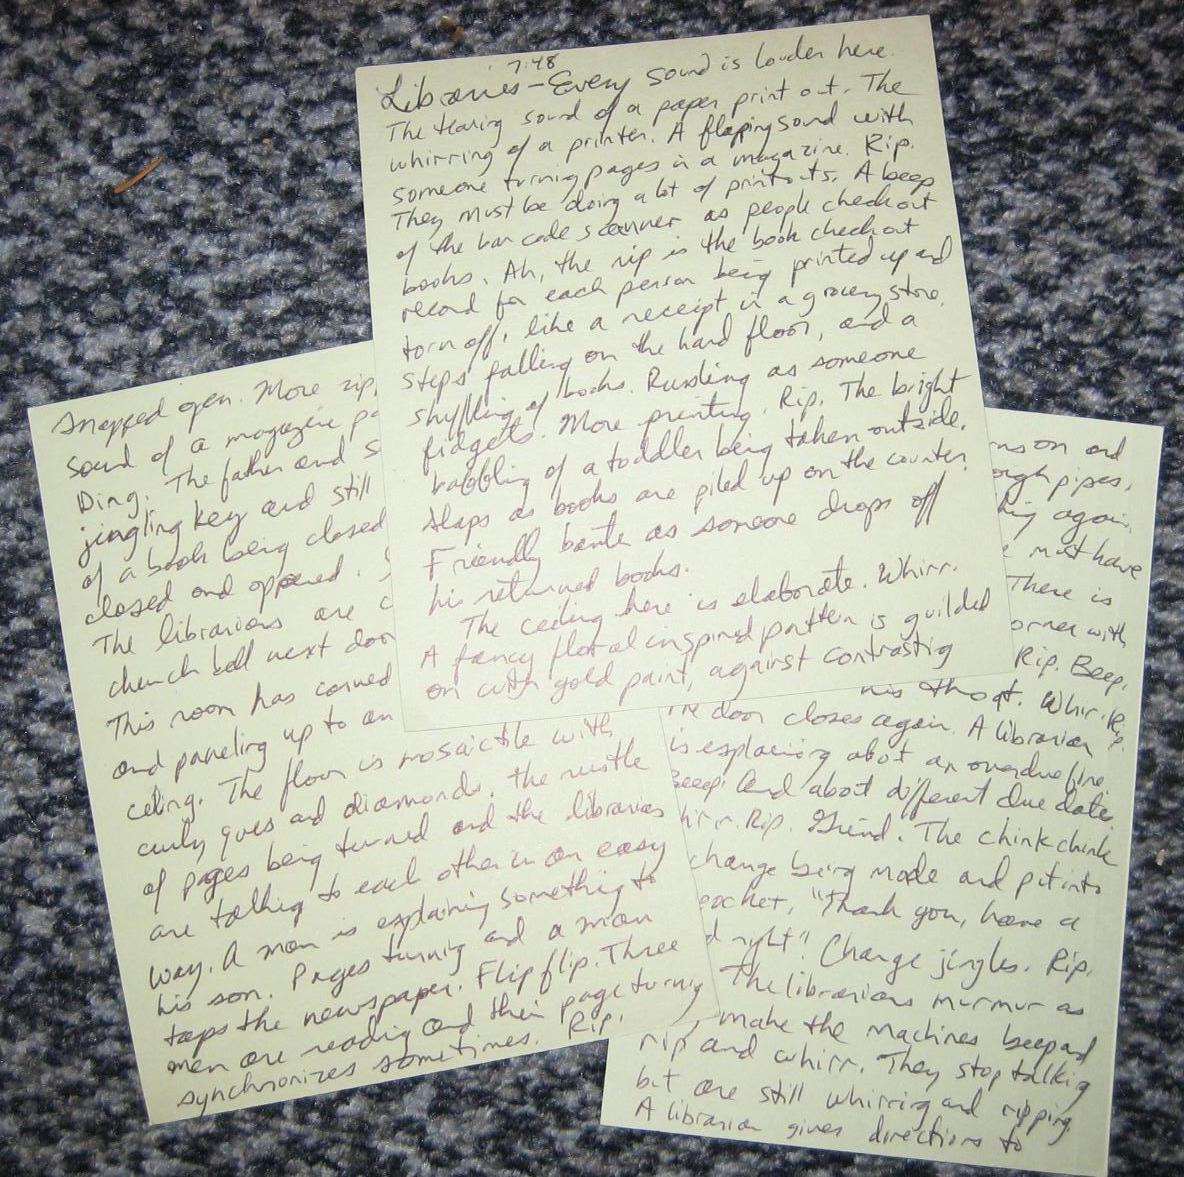 7:48
Libraries - Every sound is louder here.
The tearing sound of a paper print out. The
whirring of a printer. A flapping sound with
someone turning pages in a magazine. Rip.
They must be doing a lot of printouts. A beep
of the bar code scanner as people check out
books. Ah, the rip is the book check out
record for each person being printed up and
torn off, like a receipt in a grocery store,
steps falling on the hard floor, and a
shuffling of books. Rustling as someone
fidgets. More printing. Rip. The bright
babbling of a toddler being taken outside.
Slaps as books are piled up on the counter.
Friendly banter as someone drops off
his returned books.
The ceiling here is elaborate. Whirr.
A fancy floral inspired pattern is guilded
on with gold paint, against contrasting
Snapped open. More rip,
sound of a magazine
Ding. The father and
jingling key and still
of a book being closed
closed and oppened.
The librarians are
church bell next door
This room has carved
and paneling up to an
celing. The floor is mosaic tile with
curly ques and diamonds. the rustle
of pages being turned and the librarians
are talking to each other in an easy
way. A man is explaining something to
his son. Pages turning and a man
taps the newspaper. Flip flip. Three
men are reading and their page turning
synchronizes sometimes. Rip.
on and
pipes,
again.
must have
There is
corner with
Rip. Beep.
his throat. Whir. Rip.
The door closes again. A librarian
is explaining about an overdue fine.
Beep. And about different due dates
Rip. Grind. The chink chink
change being made and put into
pocket, "Thank you, have a
right". Change jingles. Rip.
The librarians murmur as
make the machines beep and
rip and whirr. They stop talking
but are still whirring and ripping.
A librarian gives directions to